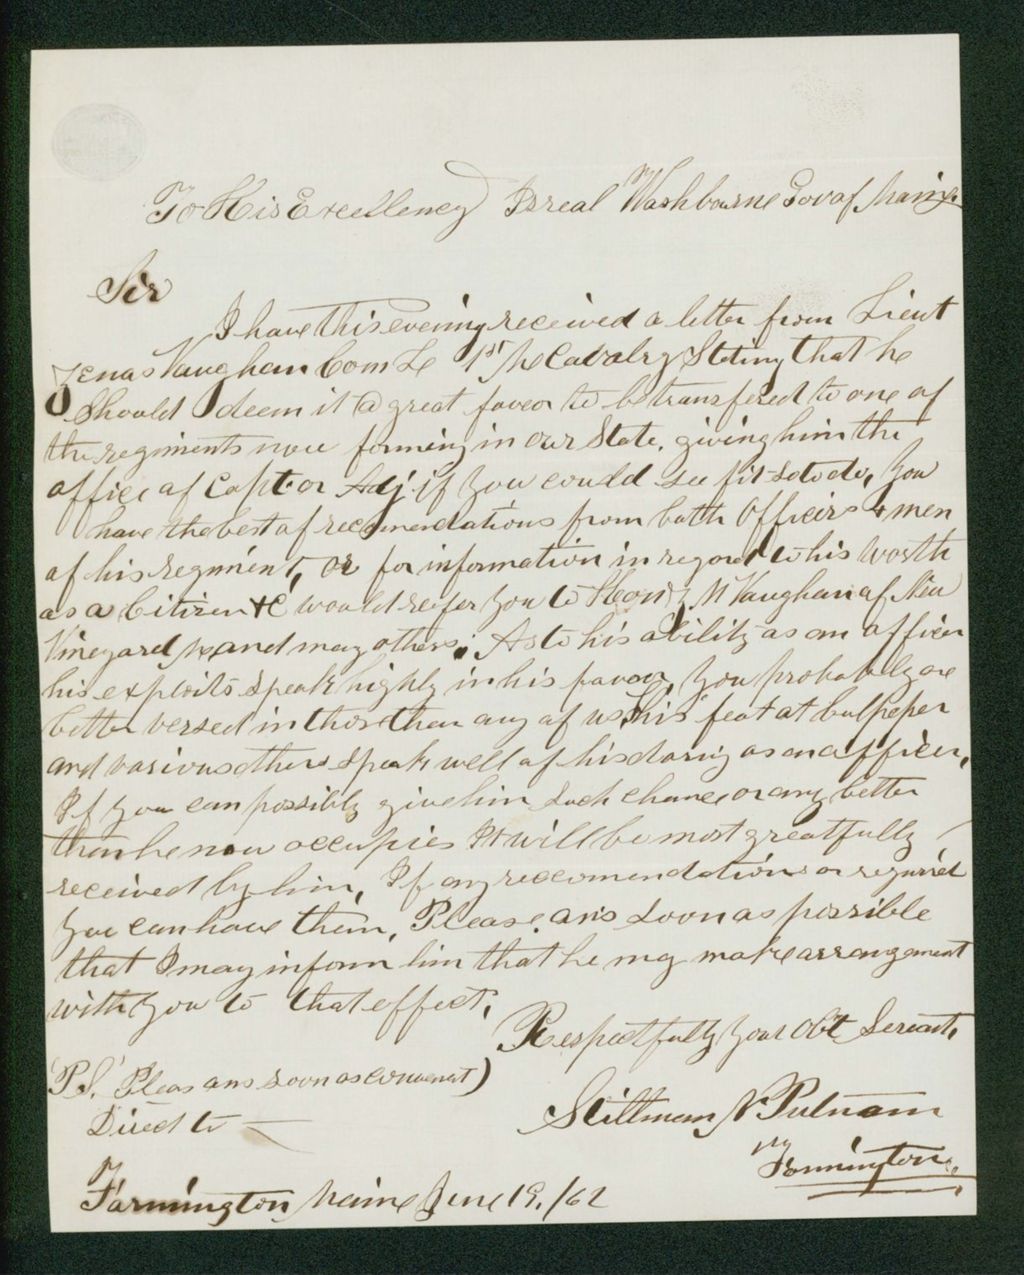 To His Excellency Isreal Washburne Gov of Maine
Sir
I have this evening received a letter from Lieut
Zenas Vaughan Com L 1st Me Cavalry Stating that he
Should deem it a great favor to be transfered to one of
the regiments now forming in our State, giving him the
office of Capt or Adj if you could see fit so to do, You
have the best of recomendations from both Officers & men
of his regiment, or for information in regard to his worth
as a Citizen &c would refer you to Hon Z M Vaughan of New
Vineyard Me and many others. As to his ability as an officer
his exploits speak highly in his favor, You probably are
better versed in those than any of us, his feat at Culpeper
and various others speak well of his daring as an officer,
If you can possibly give him such chance or any better
than he now occupies It will be most greatfully
received by him, If any reccomendations or required
you can have them, Please, ans soon as possible
that I may inform him that he my make arrangement
with you to that effect,
Respectfully Your Obt Servant,
P.S. Pleas ans soon as convenent)
Direct to
Stillman N Putnam
Farmington
Farmington Maine June 19, /62